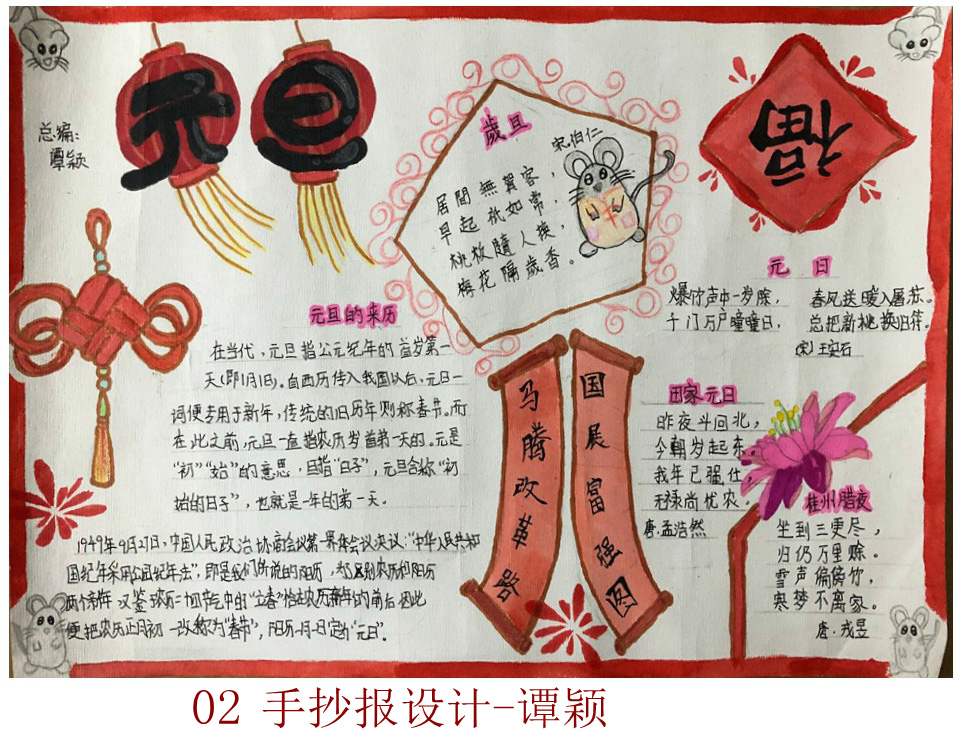 元旦
总编:
谭颖
歲旦
宋.伯仁
居間無賀客，
早起祗如常，
桃板隨人换，
梅花隔歲香。
福
元日
爆竹声中一岁除，
春风送暖入屠苏。
千门万户曈曈日，
总把新桃换旧符。
(宋)王安石
元旦的来历
在当代，元旦指公元纪年的首岁第一
天(即1月1日)。自西历传入我国以后，元旦一
词便专用于新年，传统的旧历年则称春节。而
在此之前,元旦一直指农历岁首第一天的。元是
"初""始"的意思，旦指"日子"，元旦合称"初
始的日子"，也就是一年的第一天。
1949年9月27日，中国人民政治协商会议第一界体会议决议:"中华人民共和
国纪年采用公园纪年法"，即是我们所说的阳历，为区别农历和阳历
两个新年，又鉴农历二十四节气中的"立春"恰在农历新年的前后,因此
便把农历正月初一改称为"春节"，阳历一月一日定为"元旦"。
马腾改革路
国展富强图
田家元日
昨夜斗回北，
今朝岁起东。
我年已强仕，
无禄尚忧农。
唐.孟浩然
桂州腊夜
坐到三更尽，
归仍万里赊。
雪声偏傍竹，
寒梦不离家。
唐.戎昱
02 手抄报设计-谭颖